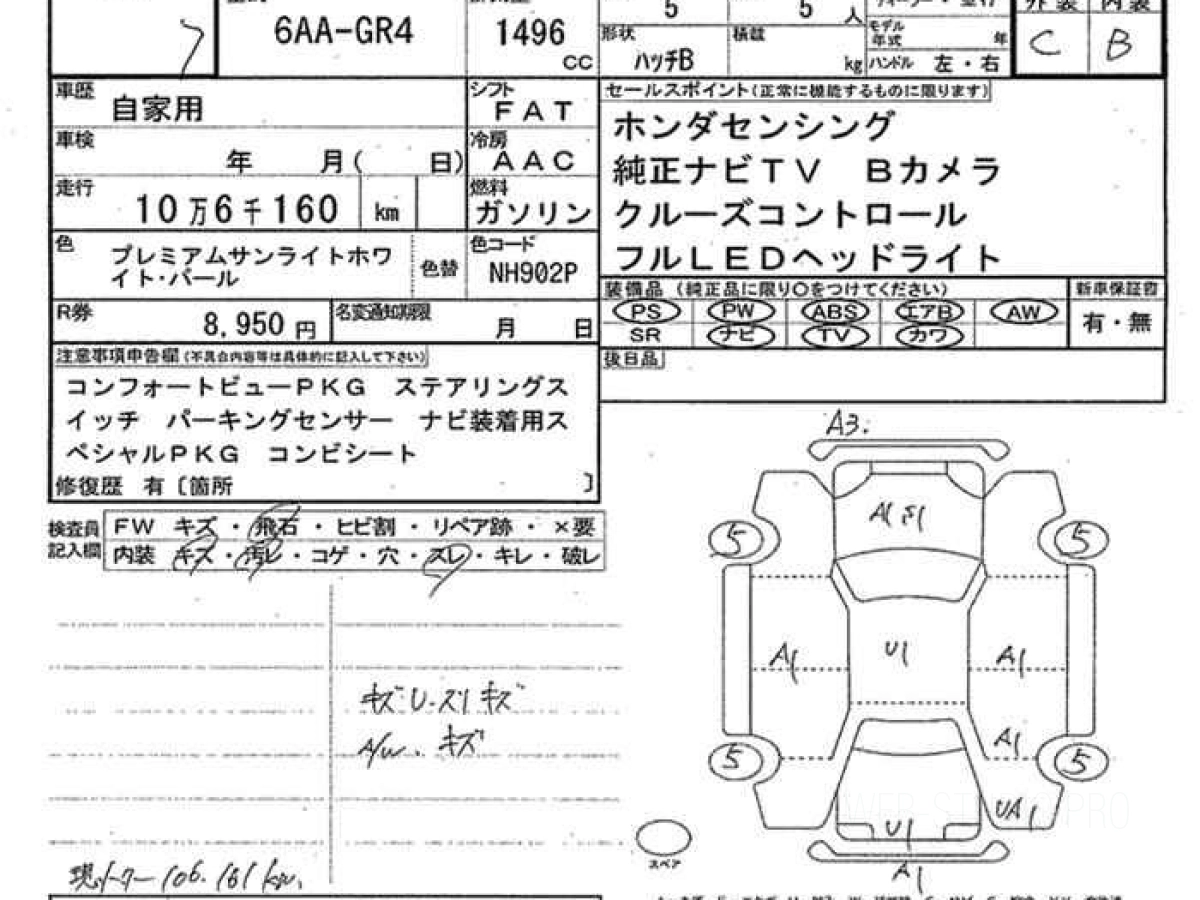 6AA-GR4
1496
CC
5
5
人
形状
ハッチB
積載
kg
モデル
年式
年
ハンドル 左・右
外装 内装
C B
車歴
自家用
シフト
FAT
車検
年 月( 日)
冷房
AAC
走行
10万6千160 km
燃料
ガソリン
色
プレミアムサンライトホワ
イト・パール
色替
色コード
NH902P
R券
8,950 円
名変通知期限
月 日
注意事項申告欄(不具合内容等は具体的に記入して下さい)
コンフォートビューPKG ステアリングス
イッチ パーキングセンサー ナビ装着用ス
ペシャルPKG コンビシート
修復歴 有〔箇所 〕
セールスポイント(正常に機能するものに限ります)
ホンダセンシング
純正ナビTV Bカメラ
クルーズコントロール
フルLEDヘッドライト
装備品 (純正品に限り○をつけてください)
新車保証書
PS PW ABS エアB AW
SR ナビ TV カワ
有・無
後日品
検査員
記入欄
FW キズ・飛石・ヒビ割・リペア跡・×要
内装 キズ・汚レ・コゲ・穴・スレ・キレ・破レ
A/W. キズ
現メーター 106.161km.
A3.
A1
5
5
A1
U1
A1
A1
5
5
UA1
U1
A1
スペア